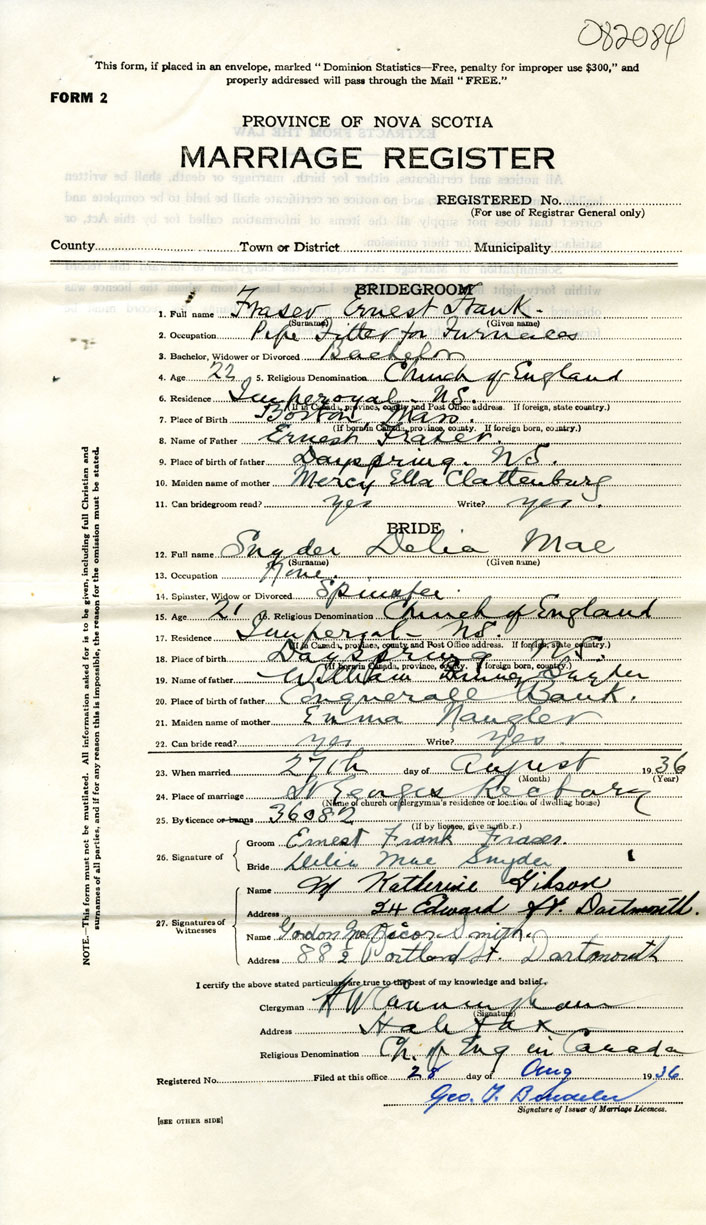 082084
This form, if placed in an envelope, marked "Dominion Statistics—Free, penalty for improper use $300," and
properly addressed will pass through the Mail "FREE."
FORM 2
PROVINCE OF NOVA SCOTIA
MARRIAGE REGISTER
REGISTERED No.
(For use of Registrar General only)
County Town or District Municipality
BRIDEGROOM
1. Full name Fraser Ernest Frank.
(Surname) (Given name)
2. Occupation Pipe Fitter for Furnaces
3. Bachelor, Widower or Divorced Bachelor
4. Age 22 5. Religious Denomination Church of England
6. Residence Imperoyal. N.S.
(If in Canada, province, county and Post Office address. If foreign, state country.)
7. Place of Birth Boston Mass.
(If born in Canada, province, county. If foreign born, country.)
8. Name of Father Ernest Fraser.
9. Place of birth of father Dayspring. N.S.
10. Maiden name of mother Mercy Ella Clattenburg
11. Can bridegroom read? yes Write? yes.
BRIDE
12. Full name Snyder Delia Mae
(Surname) (Given name)
13. Occupation None
14. Spinster, Widow or Divorced Spinster.
15. Age 21 16. Religious Denomination Church of England
17. Residence Imperial N.S.
(If in Canada, province, county and Post Office address. If foreign, state country.)
18. Place of birth Dayspring N.S.
(If born in Canada, province, county. If foreign born, country.)
19. Name of father William Snyder
20. Place of birth of father Conquerall Bank.
21. Maiden name of mother Emma Naugler
22. Can bride read? yes Write? yes.
23. When married 27th day of August 1936
(Month) (Year)
24. Place of marriage St Georges Rectory
(Name of church or clergyman's residence or location of dwelling house)
25. By licence or banns 36082
(If by licence, give number.)
26. Signature of
Groom Ernest Frank Fraser.
Bride Delia Mae Snyder
27. Signatures of
Witnesses
Name M Katherine Gibson
Address 24 Edward St. Dartmouth.
Name Gordon Smith.
Address 88½ Portland St. Dartmouth
I certify the above stated particulars are true to the best of my knowledge and belief.
Clergyman H W Cunningham
(Signature)
Address Halifax
Religious Denomination Ch. of Eng in Canada
Registered No. Filed at this office 28 day of Aug 1936
Geo. T.
Signature of Issuer of Marriage Licences.
[SEE OTHER SIDE]
NOTE.—This form must not be mutilated. All information asked for is to be given, including full Christian and
surnames of all parties, and if for any reason this is impossible, the reason for the omission must be stated.